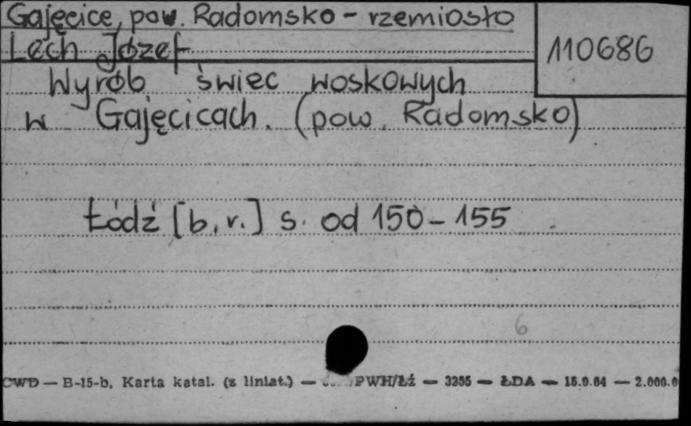 Gajęcice, pow. Radomsko - rzemiosło
Lech Józef
110686
Wyrób świec woskowych
w Gajęcicach. (pow. Radomsko)
Łódź [b.r.] s. od 150-155
6
CWD — B-15-b, Karta katal. (z liniat.) — PWH/Łź — 3255 — ŁDA — 15.9.64 — 2.000.0